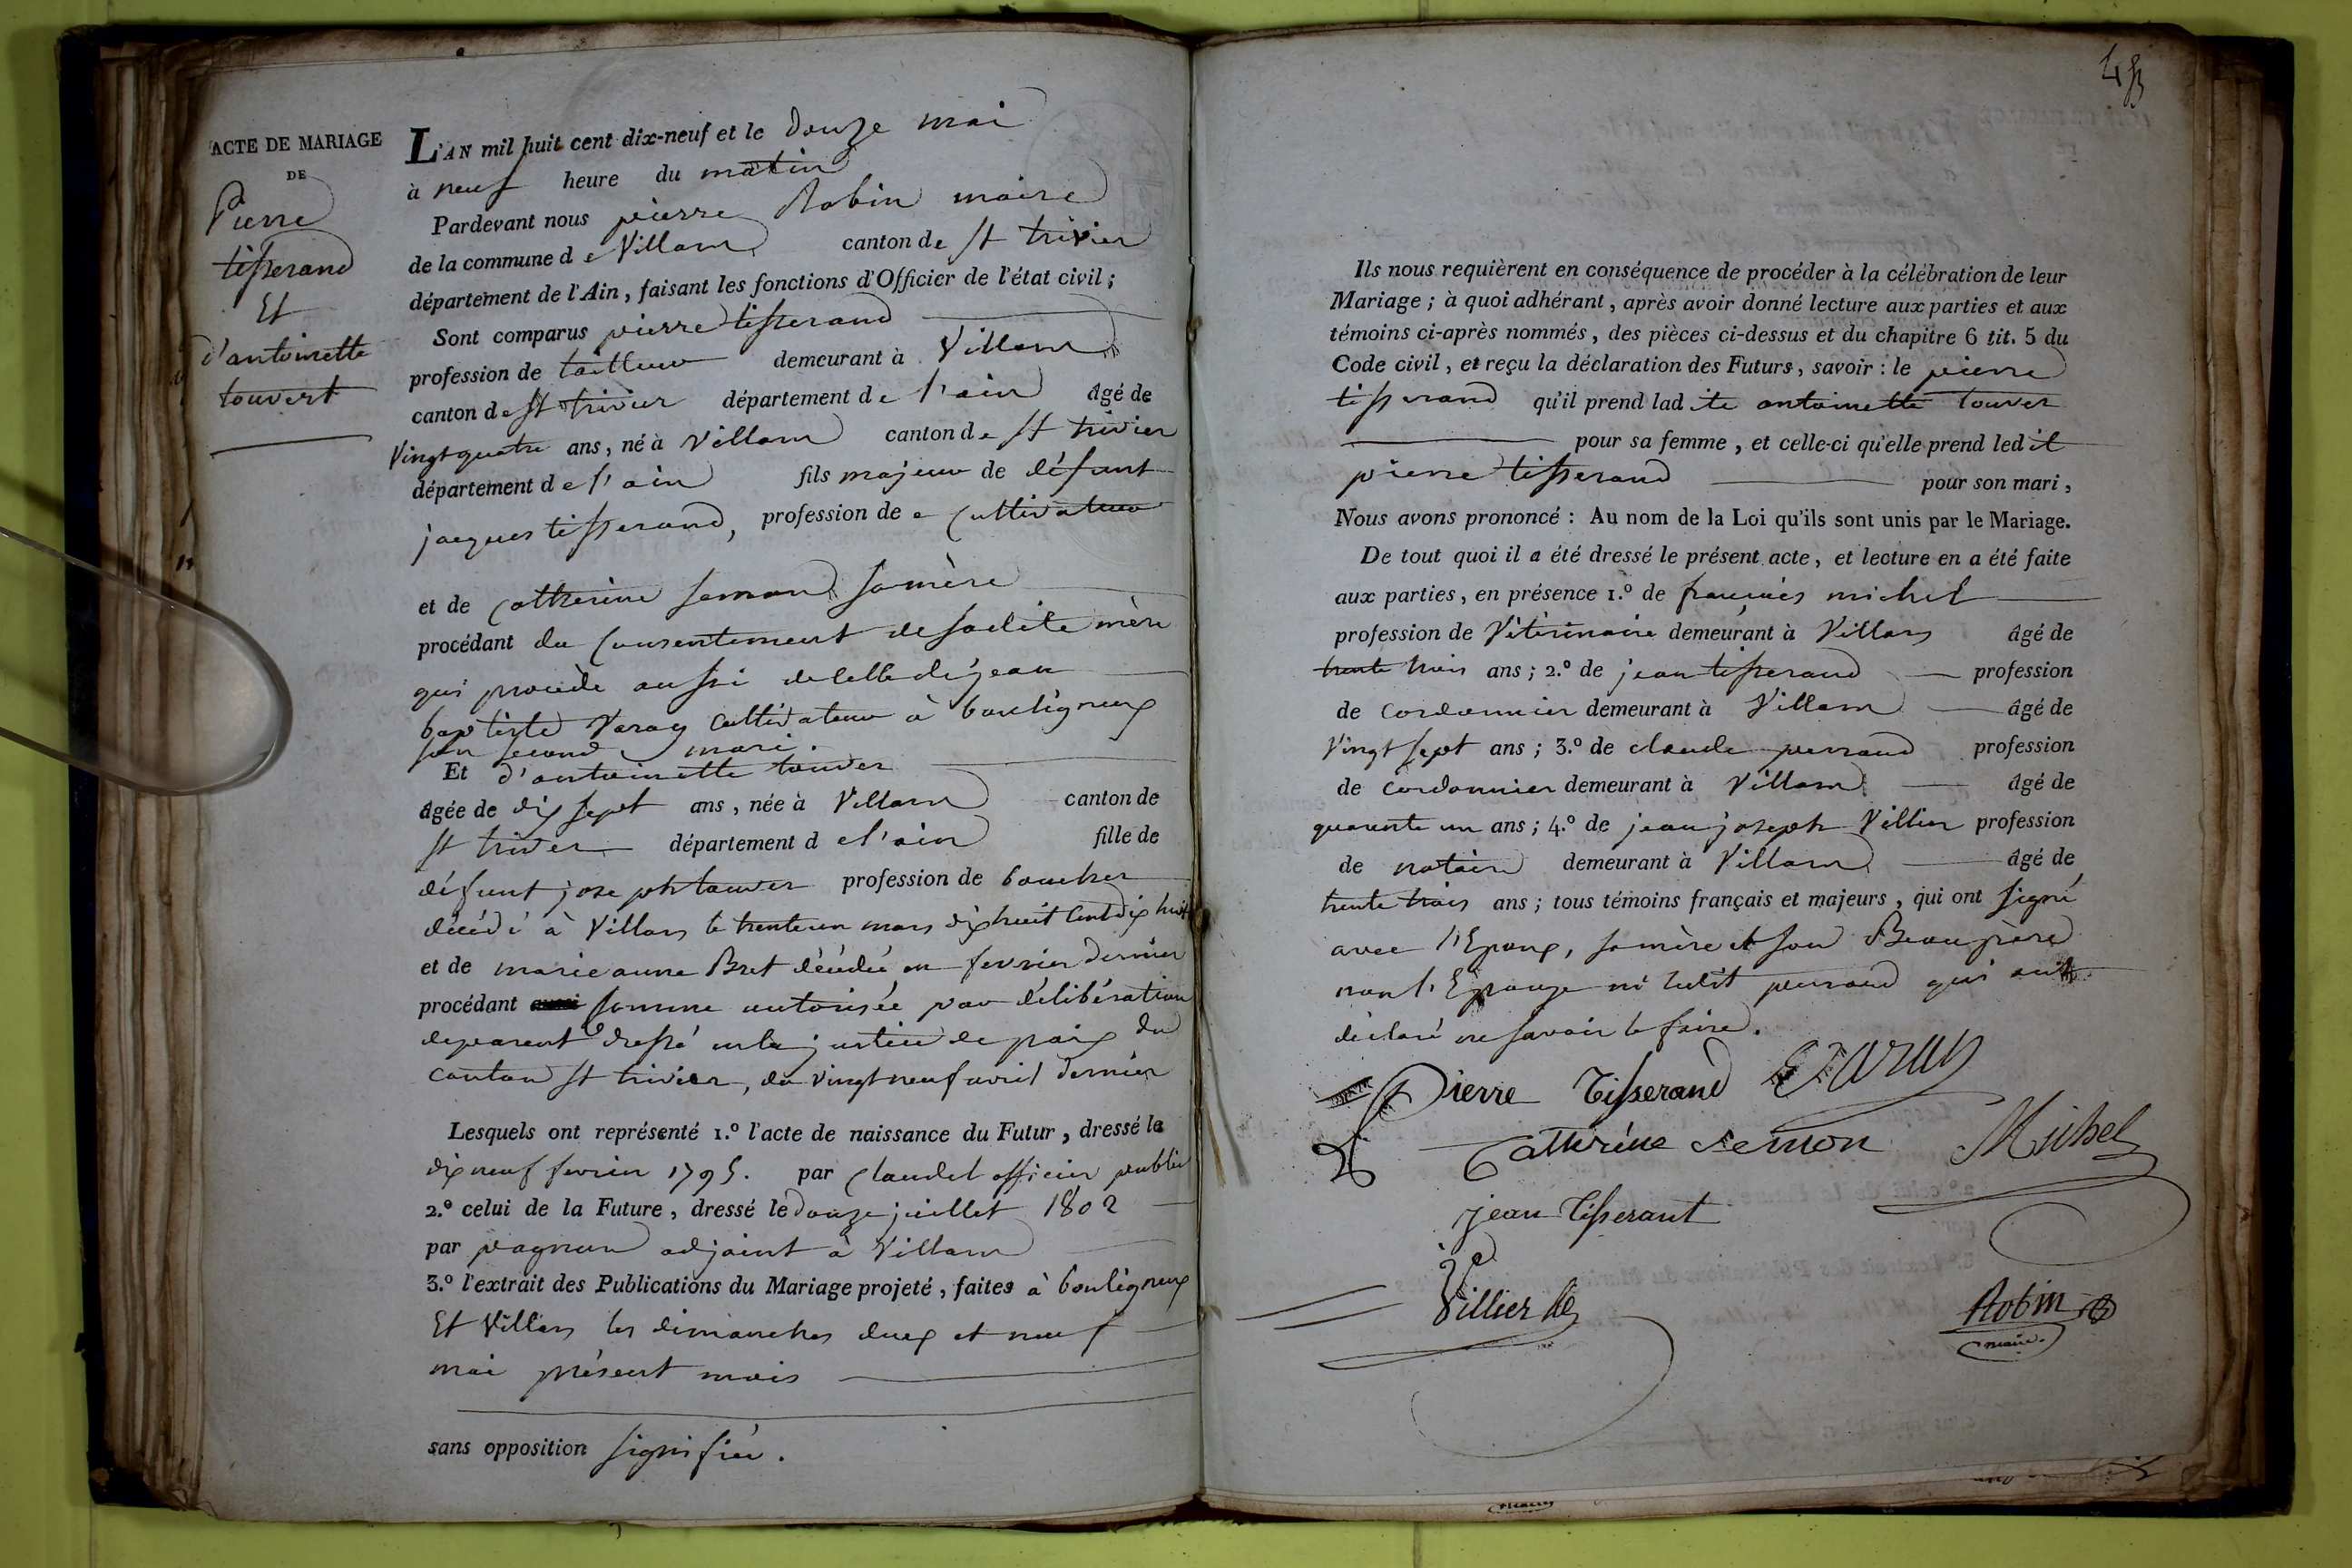 ACTE DE MARIAGE
DE
Pierre
tisserand
Et
d'antoinette
touvert
L'AN mil huit cent dix-neuf et le douze mai
à neuf heure du matin
Pardevant nous pierre Robin maire
de la commune de Villars canton de St trivier
département de l'Ain, faisant les fonctions d'Officier de l'état civil;
Sont comparus pierre tisserand
profession de tailleur demeurant à Villars
canton de St trivier département de l'ain âgé de
Vingt quatre ans, né à Villars canton de St trivier
département de l'ain fils majeur de défunt
jacques tisserand, profession de cultivateur
et de Catherine semon sa mère
procédant du Consentement de sadite mère
qui procède aussi de celle de jean
baptiste Varay cultivateur à bouligneux
son second mari.
Et d'antoinette touver
âgée de dix sept ans, née à Villars canton de
St trivier département de l'ain fille de
défunt joseph touver profession de boucher
décédé à Villars le trente un mars dix huit cent dix huit
et de marie anne Bret décédée en fevrier dernier
procédant comme autorisée par délibération
de parent dressé en la justice de paix du
canton St trivier, du vingt neuf avril dernier
Lesquels ont représenté 1.º l'acte de naissance du Futur, dressé le
dix neuf fevrier 1795. par Claudel officier public
2.º celui de la Future, dressé le douze juillet 1802
par pagnon adjoint à Villars
3.º l'extrait des Publications du Mariage projeté, faites à bouligneux
Et Villars les dimanches deux et neuf
mai présent mois
sans opposition signifiée.
Ils nous requièrent en conséquence de procéder à la célébration de leur
Mariage; à quoi adhérant, après avoir donné lecture aux parties et aux
témoins ci-après nommés, des pièces ci-dessus et du chapitre 6 tit. 5 du
Code civil, et reçu la déclaration des Futurs, savoir: le pierre
tisserand qu'il prend ladite antoinette touver
pour sa femme, et celle-ci qu'elle prend ledit
pierre tisserand pour son mari,
Nous avons prononcé: Au nom de la Loi qu'ils sont unis par le Mariage.
De tout quoi il a été dressé le présent acte, et lecture en a été faite
aux parties, en présence 1.º de françois michel
profession de Vétérinaire demeurant à Villars âgé de
trente trois ans; 2.º de jean tisserand profession
de cordonnier demeurant à Villars âgé de
Vingt sept ans; 3.º de claude perraud profession
de cordonnier demeurant à Villars âgé de
quarente un ans; 4.º de jean joseph Villier profession
de notaire demeurant à Villars âgé de
trente trois ans; tous témoins français et majeurs, qui ont signé
avec l'Epoux, sa mère et son Beaupère
non l'Epouze ni ledit perraud qui ont
déclaré ne savoir le faire.
Pierre Tisserand Varay
Catherine semon Michel
jean Tisserant
Villier
Robin
maire.